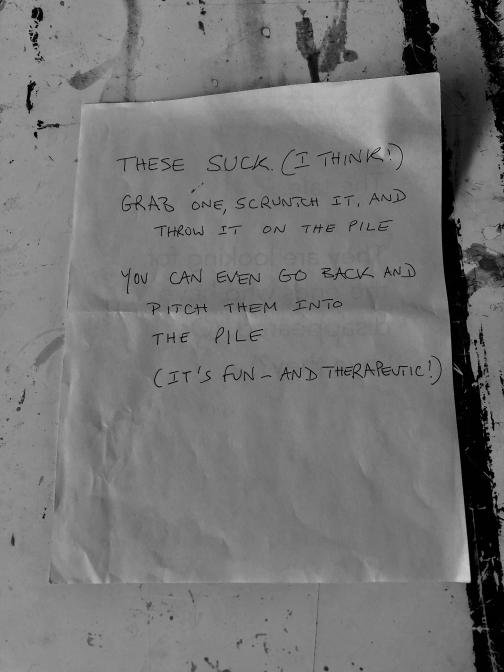 THESE SUCK. (I THINK!)
GRAB ONE, SCRUNTCH IT, AND
THROW IT ON THE PILE
YOU CAN EVEN GO BACK AND
PITCH THEM INTO
THE PILE
(IT'S FUN - AND THERAPEUTIC!)